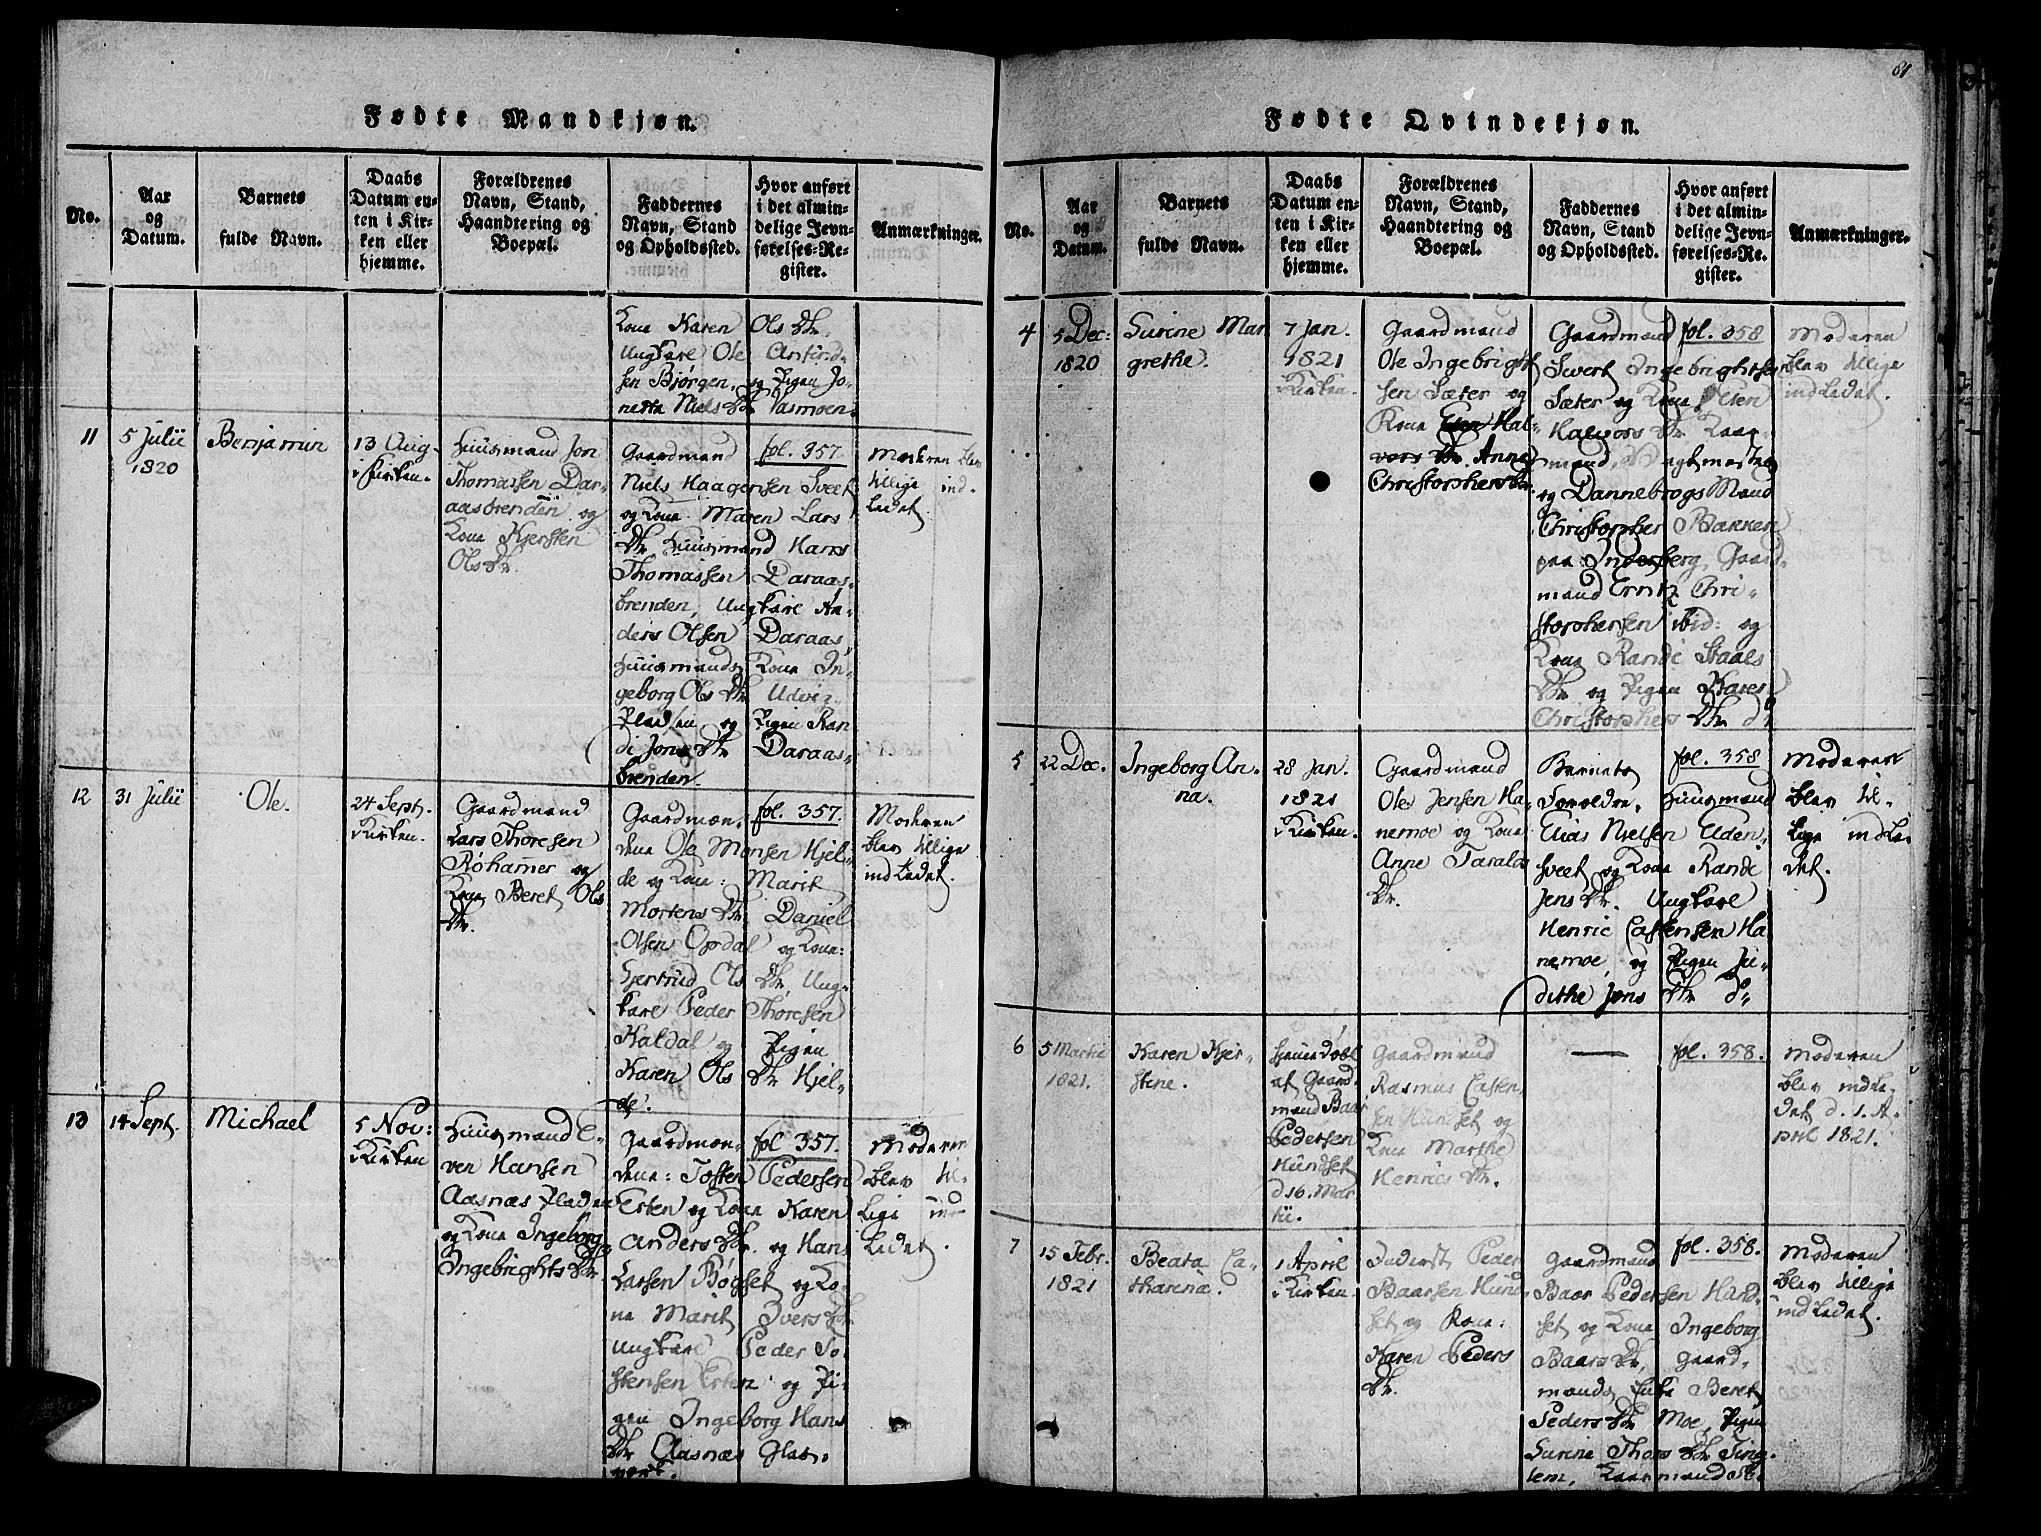 81
Fødte Mandkjøn.
No.
Aar
og
Datum.
Barnets
fulde Navn.
Daabs
Datum en-
ten i Kir-
ken eller
hjemme.
Forældrenes
Navn, Stand,
Haandtering og
Boepæl.
Faddernes
Navn, Stand
og Opholdssted.
Hvor anført
i det almin-
delige Jevn-
førelses-Re-
gister.
Anmærkninger.
Kone Karen Ols Dtr.
Ungkarl Ole
sen Bjørgen, og Pigen Jo-
netta Niels Dtr Vasmoen.
11
5 Julii
1820
Benjamin
13 Aug.
i Kirken.
Huusmand Jon
Thomassen Dar-
aasbrenden og
Kone Kjersten
Ols Dtr.
Gaardmand
Niels Haagensen Sveet
og Kone Maren Lars
Dtr. Huusmand Hans
Thomassen Daraas-
brenden, Ungkarl An-
ders Olsen Daraas,
Huusmands Kone In-
geborg Ols Dtr Udvig
Pladsen og Pigen Ran-
di Jons Dtr Daraas-
brenden.
fol. 357.
Moderen blev
tillige ind-
ledet.
12
31 Julii
Ole.
24 Sept.
i Kirken.
Gaardmand
Lars Thoresen
Røhamer og
Kone Beret Ols
Dtr.
Gaardmæn-
dene Ole Monsen Hjel-
de og Kone: Marit
Mortens Dtr, Daniel
Olsen Opdal og Kone:
Gjertrud Ols Dtr, Ung-
karl Peder Thoresen
Kaldal og Pigen
Karen Ols Dtr Hjel-
de.
fol. 357.
Moderen
blev tillige
indledet.
13
14 Sept.
Michael
5 Nov:
i Kirken
Huusmand E-
ven Hansen
Aasnæs Pladsen
og Kone Ingeborg
Ingebrights Dtr
Gaardmæn-
dene: Tosten Pedersen
Erten og Kone Karen
Anders Dtr. og Hans
Larsen Bøgset og Ko-
ne Marit Ivers Dtr
Ungkarl Peder To-
stensen Erten og Pi-
gen Ingeborg Hans
Dtr Aasnæs Glas-
værk.
fol 357.
Moderen
blev til-
lige ind
ledet.
Fødte Qvindekjøn.
No.
Aar
og
Datum.
Barnets
fulde Navn.
Daabs
Datum en-
ten i Kir-
ken eller
hjemme.
Forældrenes
Navn, Stand,
Haandtering og
Boepæl.
Faddernes
Navn, Stand
og Opholdssted.
Hvor anført
i det almin-
delige Jevn-
førelses-Re-
gister.
Anmærkninger.
4
5 Dec:
1820
Surine Mar
grethe.
7 Jan.
1821
i Kirken.
Gaardmand
Ole Ingebright-
sen Sæter og
Kone Hal-
vors Dtr. Anne
Christophers Dtr.
Gaardmand
Sivert Ingebrightsen
Sæter og Kone
Halvors Dtr
mand,
og DannebrogsMand
Christopher Bakken
paa Inderberg, Gaard-
mand Erritz Chri-
stophersen ibid: og
Kone Randi Staals
Dtr og Pigen Karen
Christophers Dtr do
fol. 358
Moderen
blev tillige
indledet.
5
22 Dec.
Ingeborg An-
na.
28 Jan.
1821
i Kirken.
Gaardmand
Ole Jensen Ha-
nemoe og Kone
Anne Taralds
Dtr.
Barnets
Forældre, Huusmand
Elias Nielsen Uden-
sveet og Kone Randi
Jens Dtr. Ungkarl
Henric Castensen Ha
nemoe, og Pigen Ju-
dithe Jens Dtr do
fol. 358
Moderen
blev til-
lige indle-
det.
6
5 Martii
1821.
Karen Kjer-
stine.
Hjemmedøbt
af Gaard-
mand Baar
Pedersen
Hundset
d 16. Mar
tii.
Gaardmand
Rasmus Casten-
sen Hundset og
Kone Marthe
Henrics Dtr.
—
fol. 358.
Moderen
blev indle-
det d. 1. A-
pril 1821.
7
15 Febr.
1821
Beata Ca-
tharina.
1 April
i Kirken
Inderst Peder
Baarsen Hund-
set og Kone:
Karen Peders
Dtr.
Gaardmand
Baar Pedersen Hund-
set og Kone Ingeborg
Baars Dtr, Gaard-
mands Enke Beret
Peders Dtr Moe, Pigen
Surine Thors Dtr Ting-
lem, Gaardmand
fol. 358.
Moderen
blev tillige
indledet.